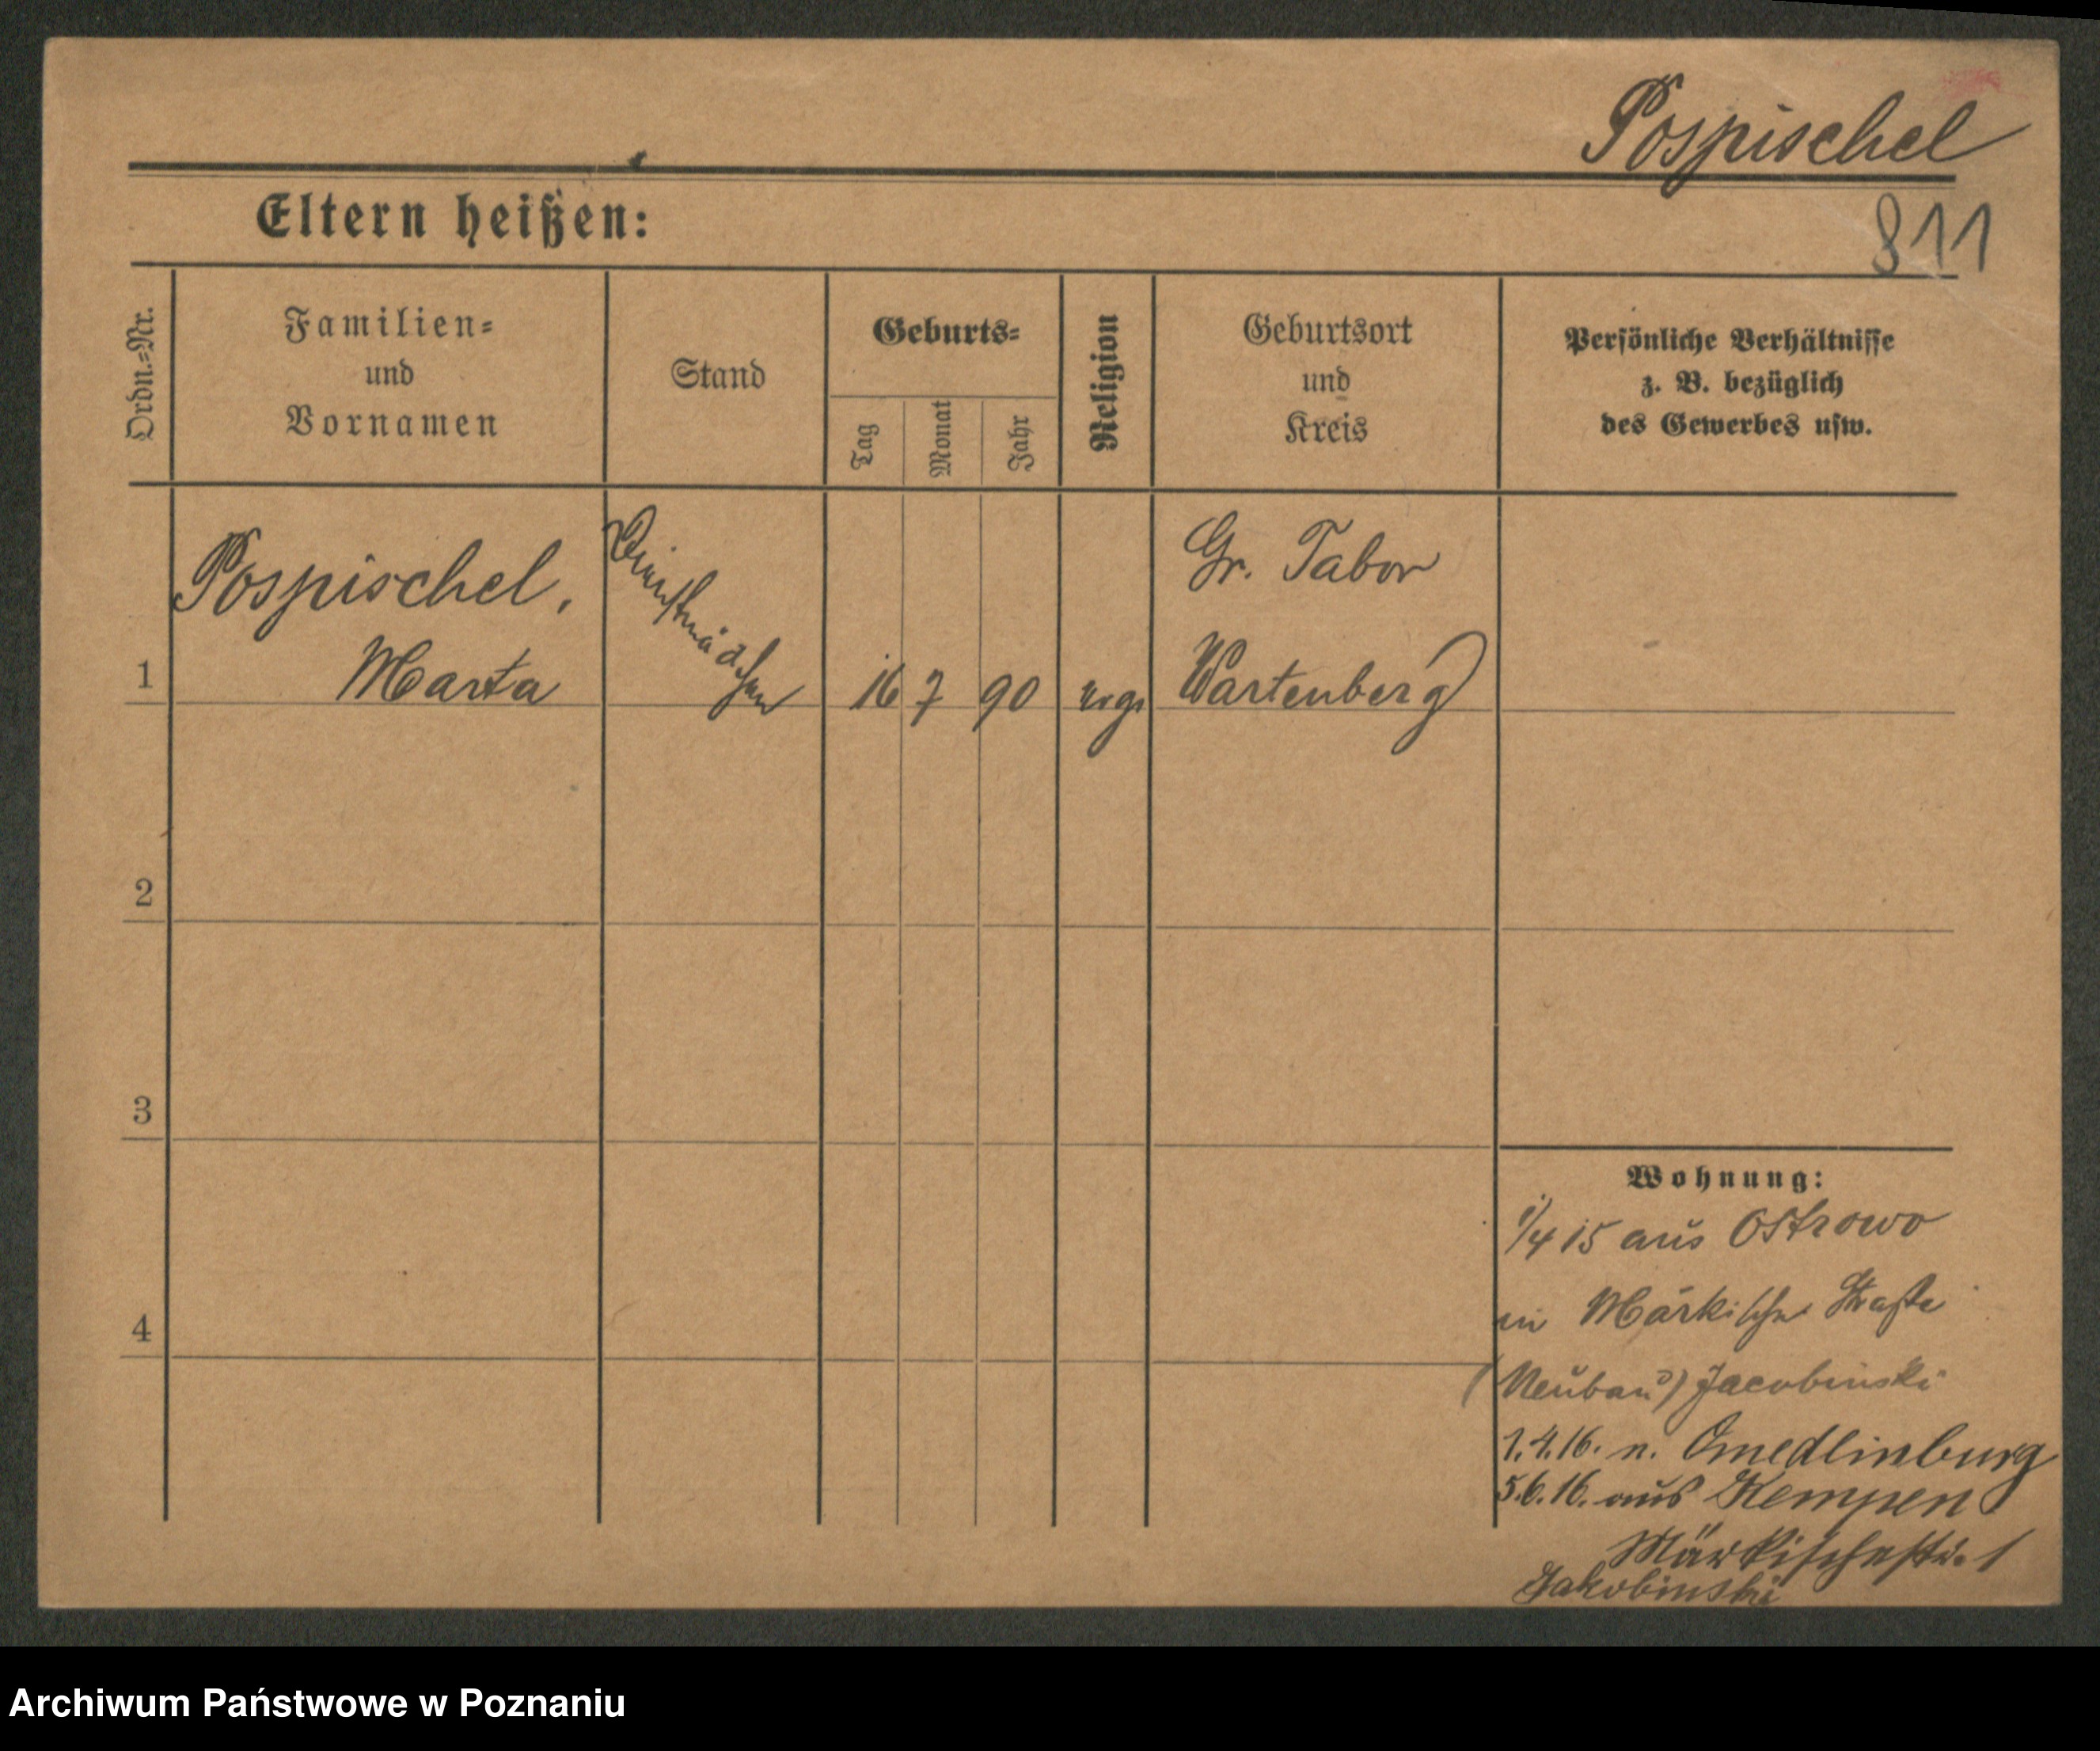 Pospischel
Eltern heißen:
811
Ordn.=Nr.
Familien=
und
Vornamen
Stand
Geburts=
Tag
Monat
Jahr
Religion
Geburtsort
und
Kreis
Persönliche Verhältnisse
z. B. bezüglich
des Gewerbes usw.
1
Pospischel,
Marta
Dienstmädchen
16 7 90
evgl
Gr. Tabor
Wartenberg
2
3
4
Wohnung:
1/4 15 aus Ostrowo
in Märkische Straße
(Neubau) Jacobinski
1.4.16. n. Qnedlinburg
5.6.16. aus Kempen
Märkischestr. 1
Jakobinski
Archiwum Państwowe w Poznaniu